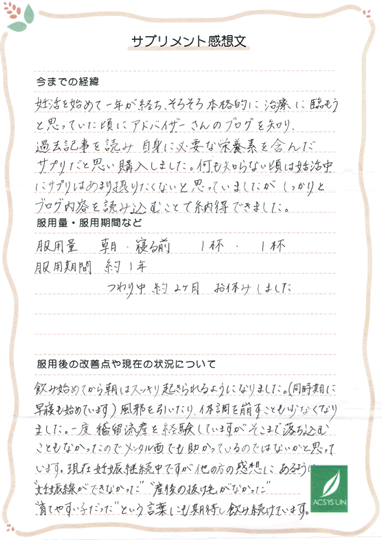 サプリメント感想文
今までの経緯
妊活を始めて一年が経ち、そろそろ本格的に治療に臨もう
と思っていた頃にアドバイザーさんのブログを知り、
過去記事を読み 自身に必要な栄養素を含んだ
サプリだと思い購入しました。何も知らない頃は妊活中
にサプリはあまり摂りたくないと思っていましたが しっかりと
ブログ内容を読み込むことで納得できました。
服用量・服用期間など
服用量 朝・寝る前 1杯・1杯
服用期間 約1年
つわり中 約2ヶ月 お休みしました
服用後の改善点や現在の状況について
飲み始めてから朝はスッキリ起きられるようになりました。(同時期に
早寝も始めています) 風邪を引いたり、体調を崩すことも少なくなり
ました。一度 稽留流産を経験していますが そこまで落ち込む
こともなかったのでメンタル面でも助かっているのではないかと思って
います。現在 妊娠継続中ですが 他の方の感想に あるように
"妊娠線ができなかった" "産後の抜け毛がなかった"
"育てやすい子だった" という言葉にも期待し飲み続けています。
ACSYS LIN